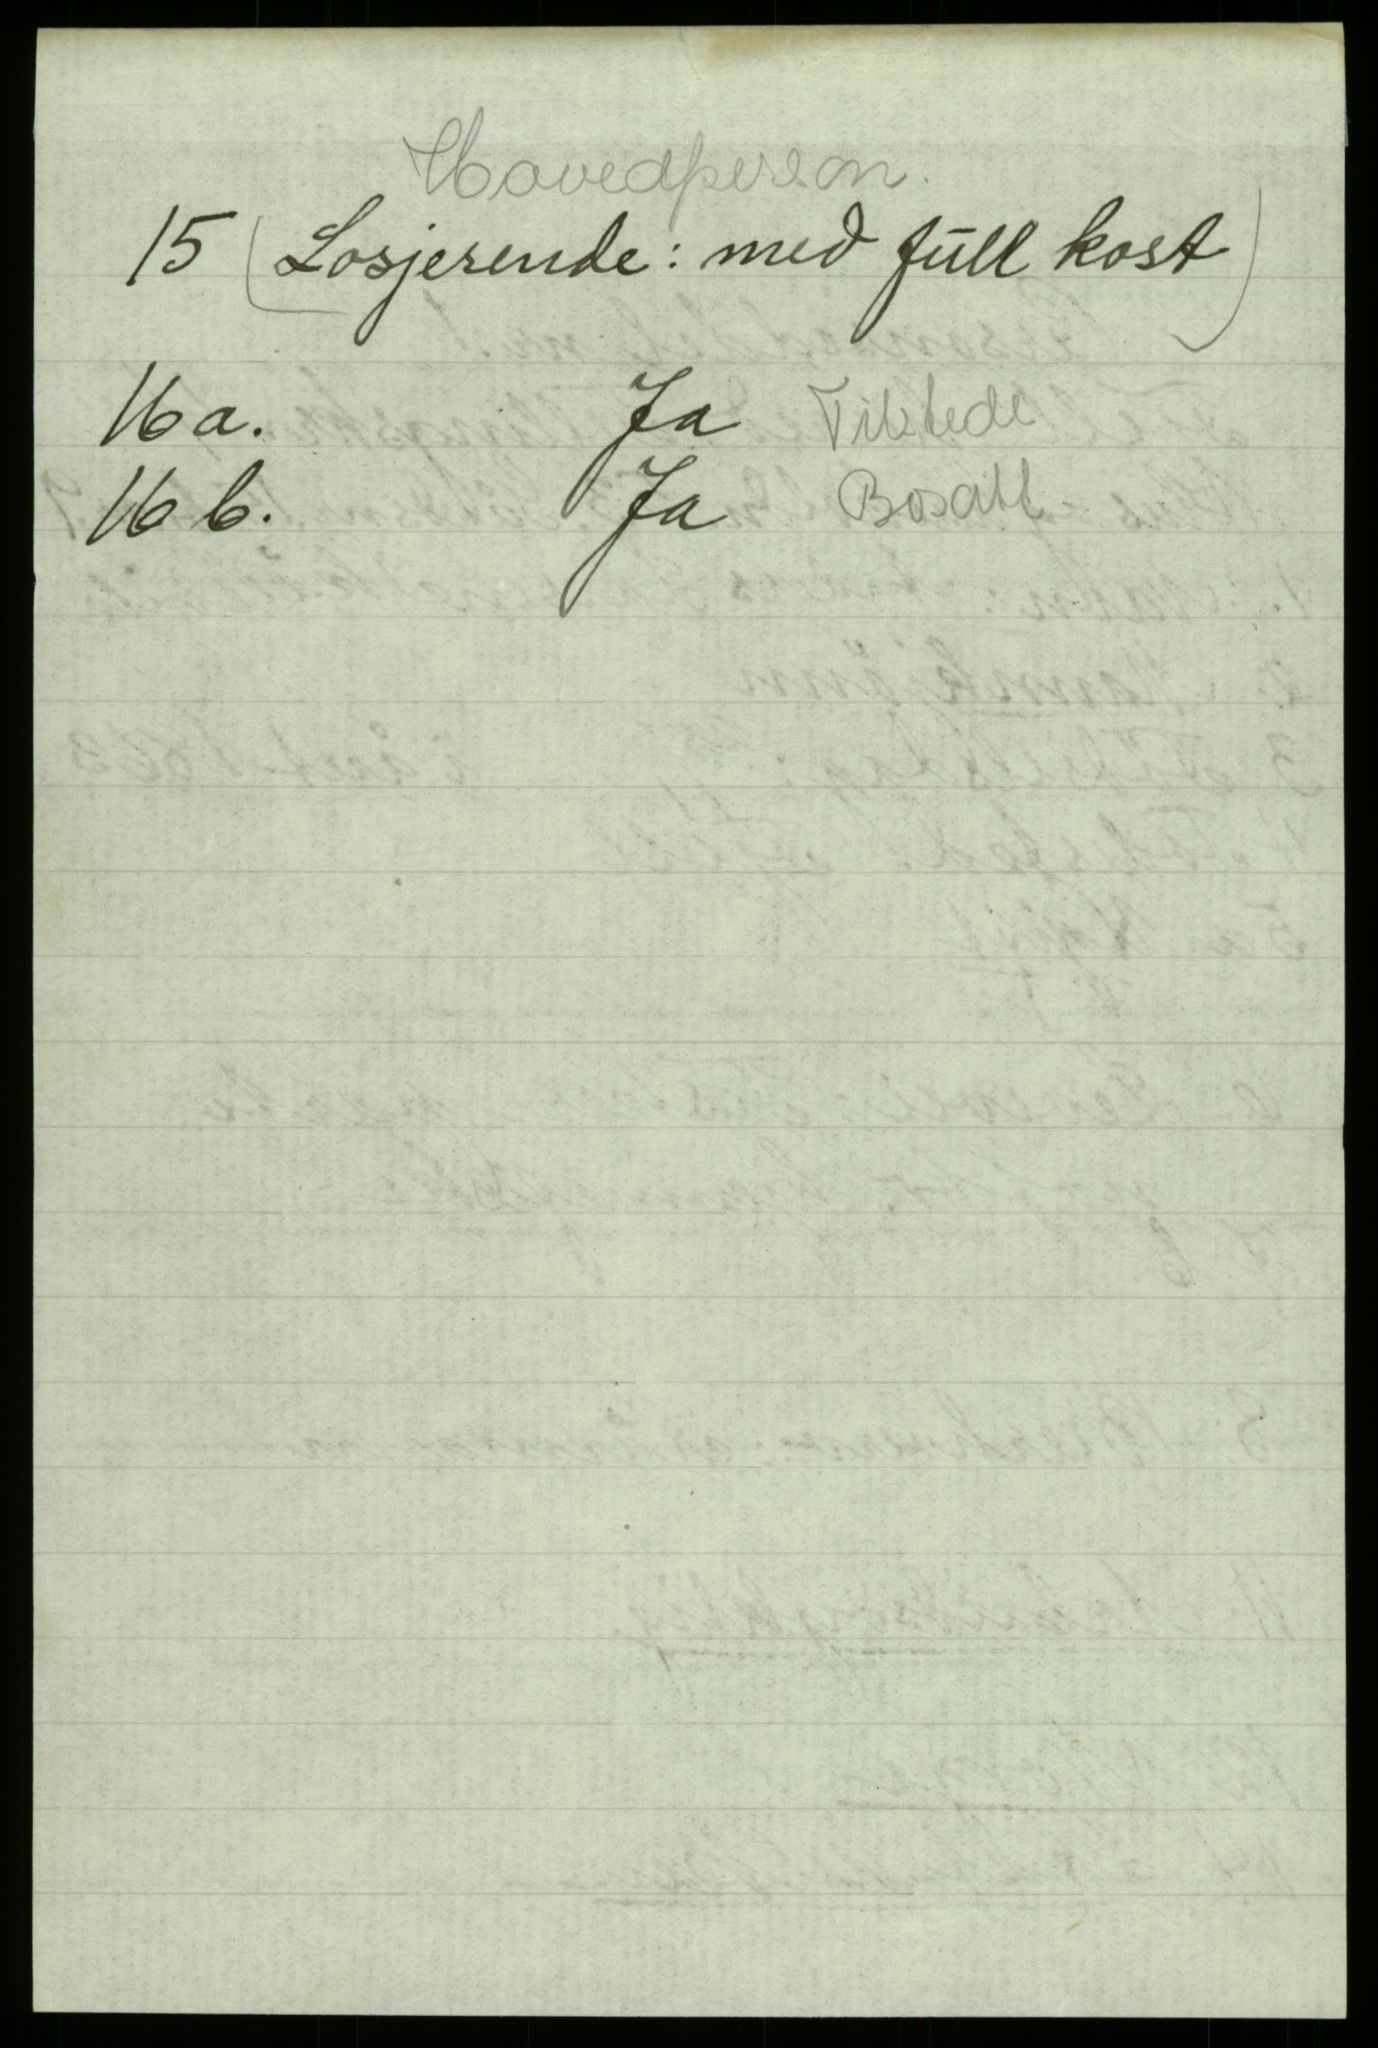 Hovedperson.
15 (Losjerende: med full kost)
16 a. Ja Tilstede
16 b. Ja Bosatt